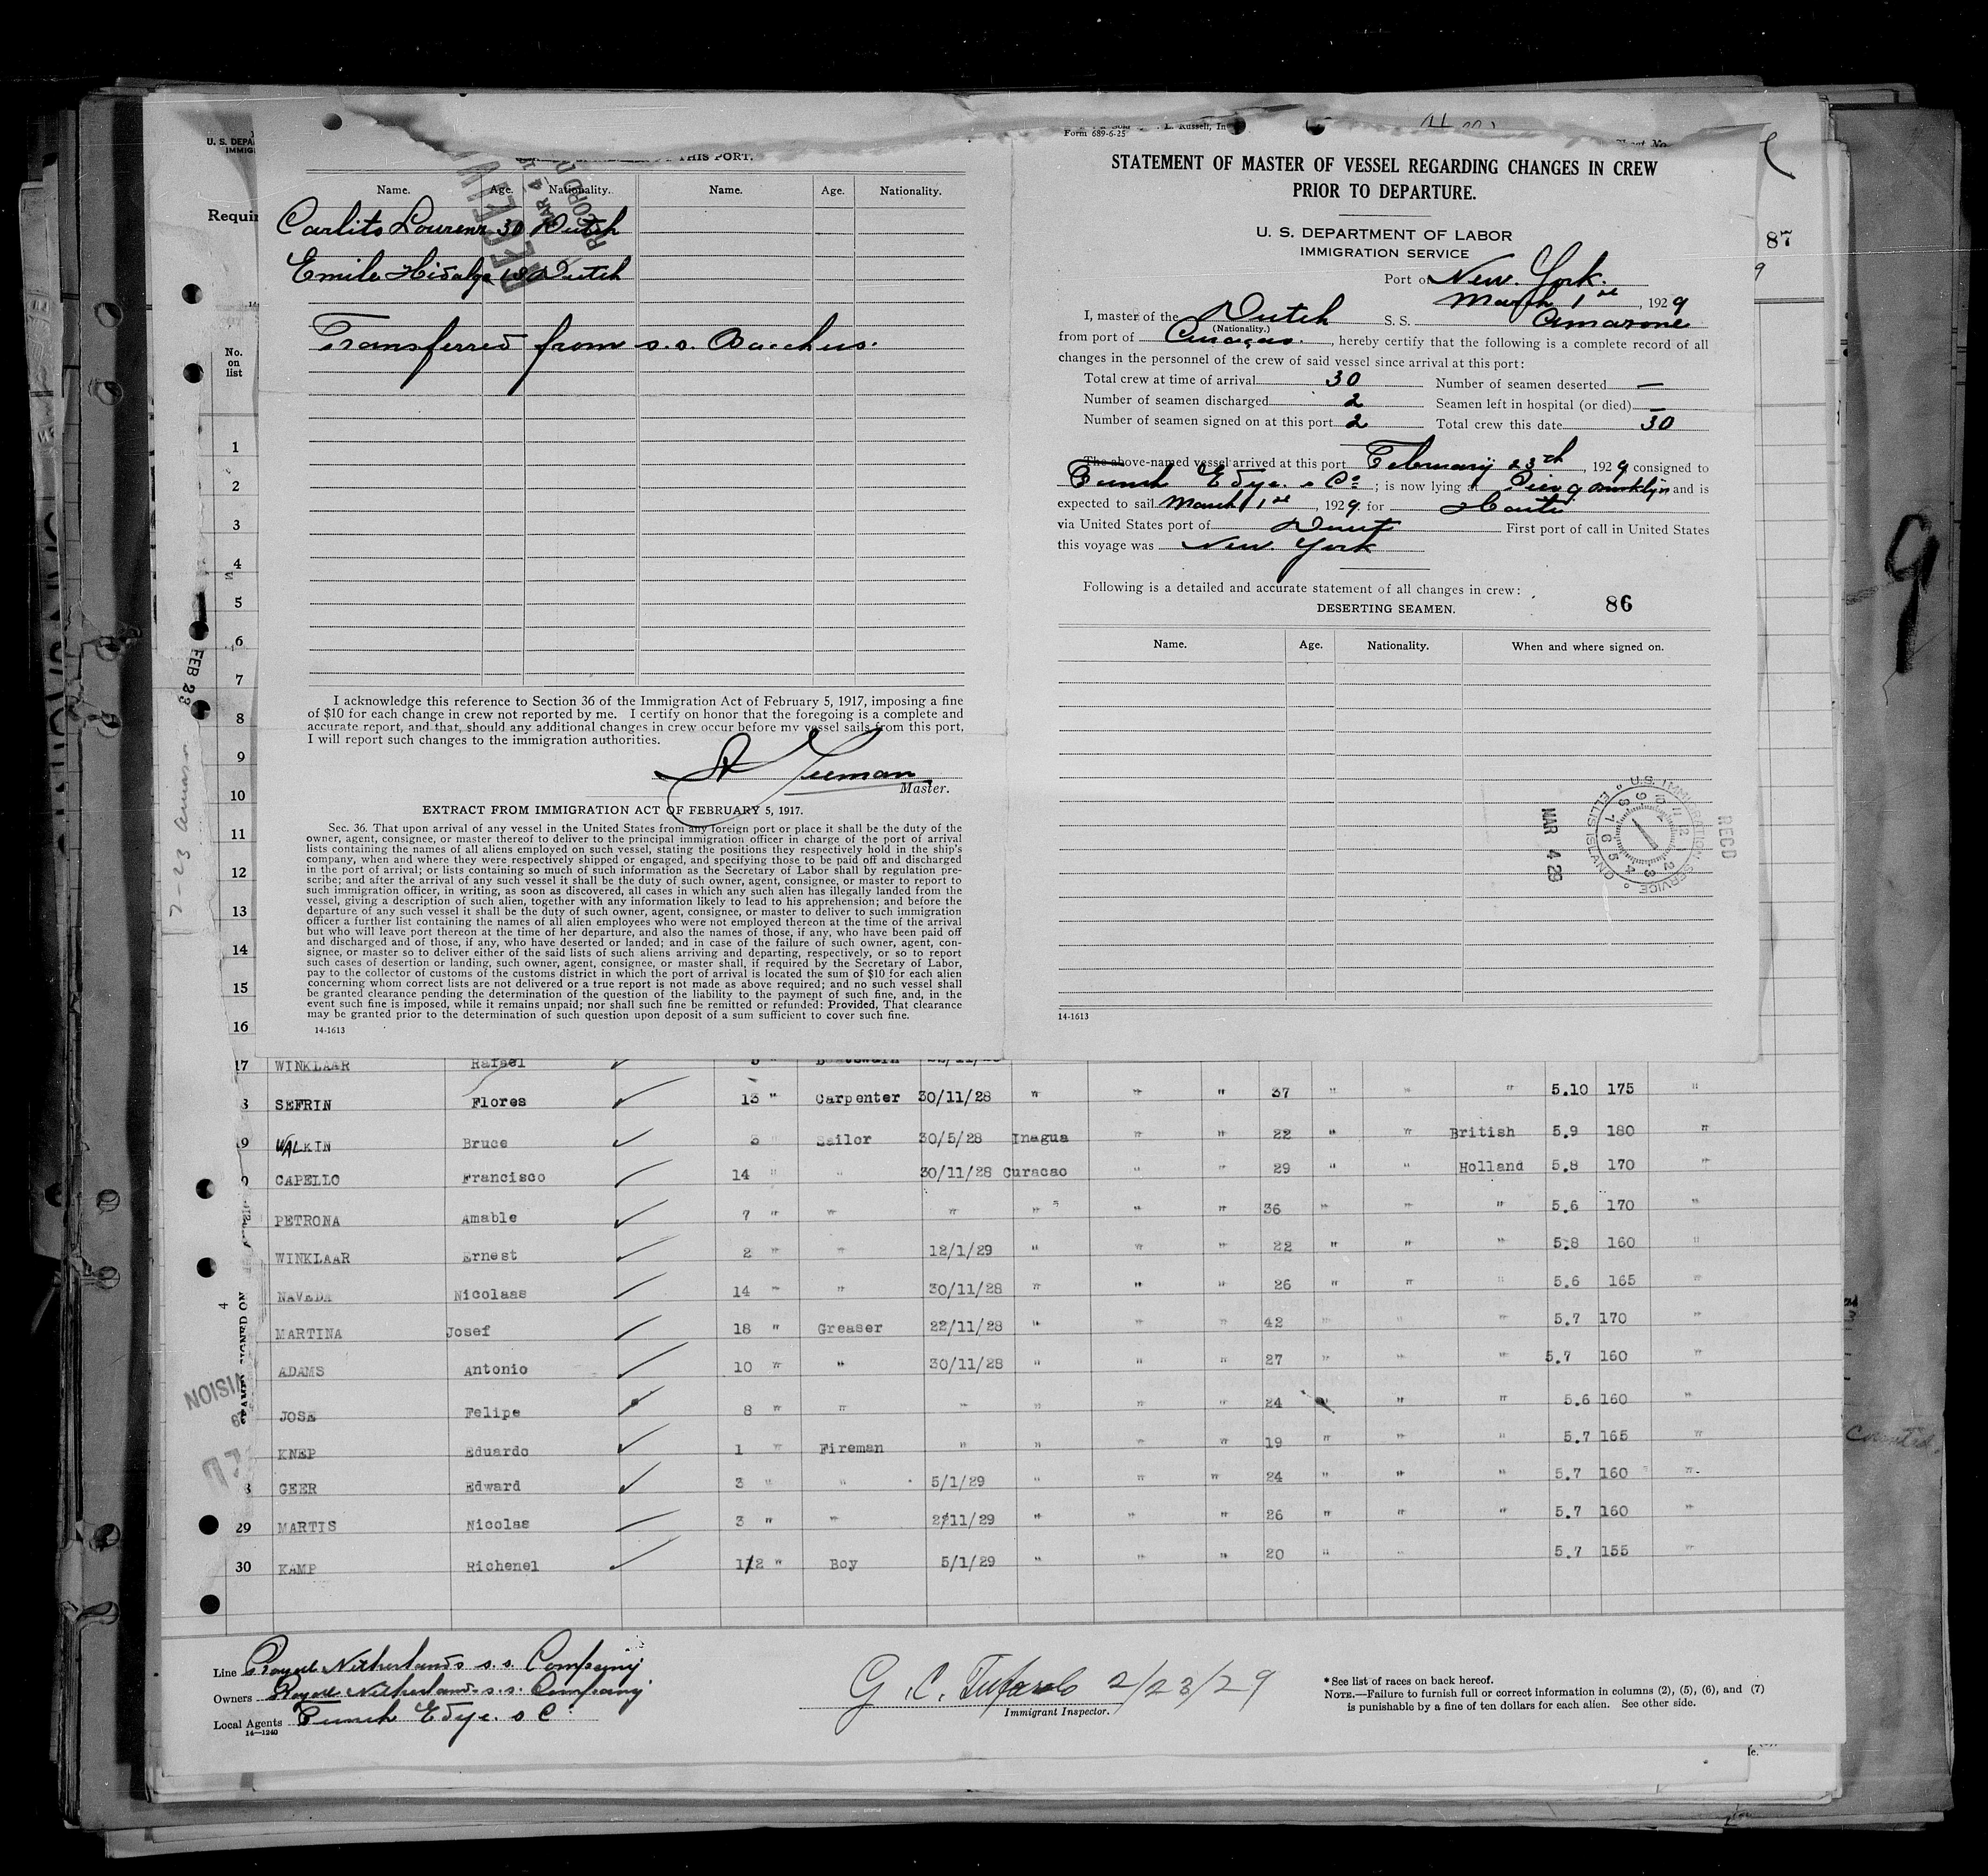 U. S. DEPA
IMMIG
Requir
No.
on
list
1
2
3
4
5
6
7
8
9
10
11
12
13
14
15
16
THIS PORT.
Name. Age. Nationality. Name. Age. Nationality.
Carlito 30 Dutch
Emile Hidalgo 18 Dutch
Transferred from s.s. Bacchus.
I acknowledge this reference to Section 36 of the Immigration Act of February 5, 1917, imposing a fine
of $10 for each change in crew not reported by me. I certify on honor that the foregoing is a complete and
accurate report, and that, should any additional changes in crew occur before my vessel sails from this port,
I will report such changes to the immigration authorities.
Master.
EXTRACT FROM IMMIGRATION ACT OF FEBRUARY 5, 1917.
Sec. 36. That upon arrival of any vessel in the United States from any foreign port or place it shall be the duty of the
owner, agent, consignee, or master thereof to deliver to the principal immigration officer in charge of the port of arrival
lists containing the names of all aliens employed on such vessel, stating the positions they respectively hold in the ship's
company, when and where they were respectively shipped or engaged, and specifying those to be paid off and discharged
in the port of arrival; or lists containing so much of such information as the Secretary of Labor shall by regulation pre-
scribe; and after the arrival of any such vessel it shall be the duty of such owner, agent, consignee, or master to report to
such immigration officer, in writing, as soon as discovered, all cases in which any such alien has illegally landed from the
vessel, giving a description of such alien, together with any information likely to lead to his apprehension; and before the
departure of any such vessel it shall be the duty of such owner, agent, consignee, or master to deliver to such immigration
officer a further list containing the names of all alien employees who were not employed thereon at the time of the arrival
but who will leave port thereon at the time of her departure, and also the names of those, if any, who have been paid off
and discharged and of those, if any, who have deserted or landed; and in case of the failure of such owner, agent, con-
signee, or master so to deliver either of the said lists of such aliens arriving and departing, respectively, or so to report
such cases of desertion or landing, such owner, agent, consignee, or master shall, if required by the Secretary of Labor,
pay to the collector of customs of the customs district in which the port of arrival is located the sum of $10 for each alien
concerning whom correct lists are not delivered or a true report is not made as above required; and no such vessel shall
be granted clearance pending the determination of the question of the liability to the payment of such fine, and, in the
event such fine is imposed, while it remains unpaid; nor shall such fine be remitted or refunded: Provided, That clearance
may be granted prior to the determination of such question upon deposit of a sum sufficient to cover such fine.
14-1613
Form 689-6-25 L. Russell, In
STATEMENT OF MASTER OF VESSEL REGARDING CHANGES IN CREW
PRIOR TO DEPARTURE.
U. S. DEPARTMENT OF LABOR
IMMIGRATION SERVICE
87
9
Port of New York.
March 1st, 1929
I, master of the Dutch S. S.
(Nationality.)
from port of Curaçao., hereby certify that the following is a complete record of all
changes in the personnel of the crew of said vessel since arrival at this port:
Total crew at time of arrival 30 Number of seamen deserted —
Number of seamen discharged 2 Seamen left in hospital (or died) —
Number of seamen signed on at this port 2 Total crew this date 30
The above-named vessel arrived at this port February 23th, 1929 consigned to
Funch Edye & Co; is now lying at Pier 9 Brooklyn and is
expected to sail March 1st, 1929 for Haiti
via United States port of Direct First port of call in United States
this voyage was New York
Following is a detailed and accurate statement of all changes in crew:
DESERTING SEAMEN. 86
Name. Age. Nationality. When and where signed on.
U.S. IMMIGRATION SERVICE ELLIS ISLAND
REC'D
MAR 4 29
14-1613
FEB 23
9
17 WINKLAAR Rafael 5 " Boatswain 22/11/28
8 SEFRIN Flores 13 " Carpenter 30/11/28 " " " 37 " " " 5.10 175 "
9 WALKIN Bruce 3 " Sailor 30/5/28 Inagua " " 22 " " British 5.9 180 "
0 CAPELLO Francisco 14 " " 30/11/28 Curacao " " 29 " " Holland 5.8 170 "
PETRONA Amable 7 " " " " " " 36 " " " 5.6 170 "
WINKLAAR Ernest 2 " " 12/1/29 " " " 22 " " " 5.8 160 "
NAVEDA Nicolaas 14 " " 30/11/28 " " " 26 " " " 5.6 165 "
MARTINA Josef 18 " Greaser 22/11/28 " " " 42 " " " 5.7 170 "
ADAMS Antonio 10 " " 30/11/28 " " " 27 " " " 5.7 160 "
JOSE Felipe 8 " " " " " " 24 " " " 5.6 160 "
KNEP Eduardo 1 " Fireman " " " " 19 " " " 5.7 165 "
8 GEER Edward 3 " " 5/1/29 " " " 24 " " " 5.7 160 "
29 MARTIS Nicolas 3 " " 2/11/29 " " " 26 " " " 5.7 160 "
30 KAMP Richenel 1/2 " Boy 5/1/29 " " " 20 " " 5.7 155 "
Line Royal Netherlands s.s. Company
Owners Royal Netherlands s.s. Company
Local Agents Funch Edye & Co
14—1240
G. C. 2/23/29
Immigrant Inspector.
* See list of races on back hereof.
NOTE.—Failure to furnish full or correct information in columns (2), (5), (6), and (7)
is punishable by a fine of ten dollars for each alien. See other side.